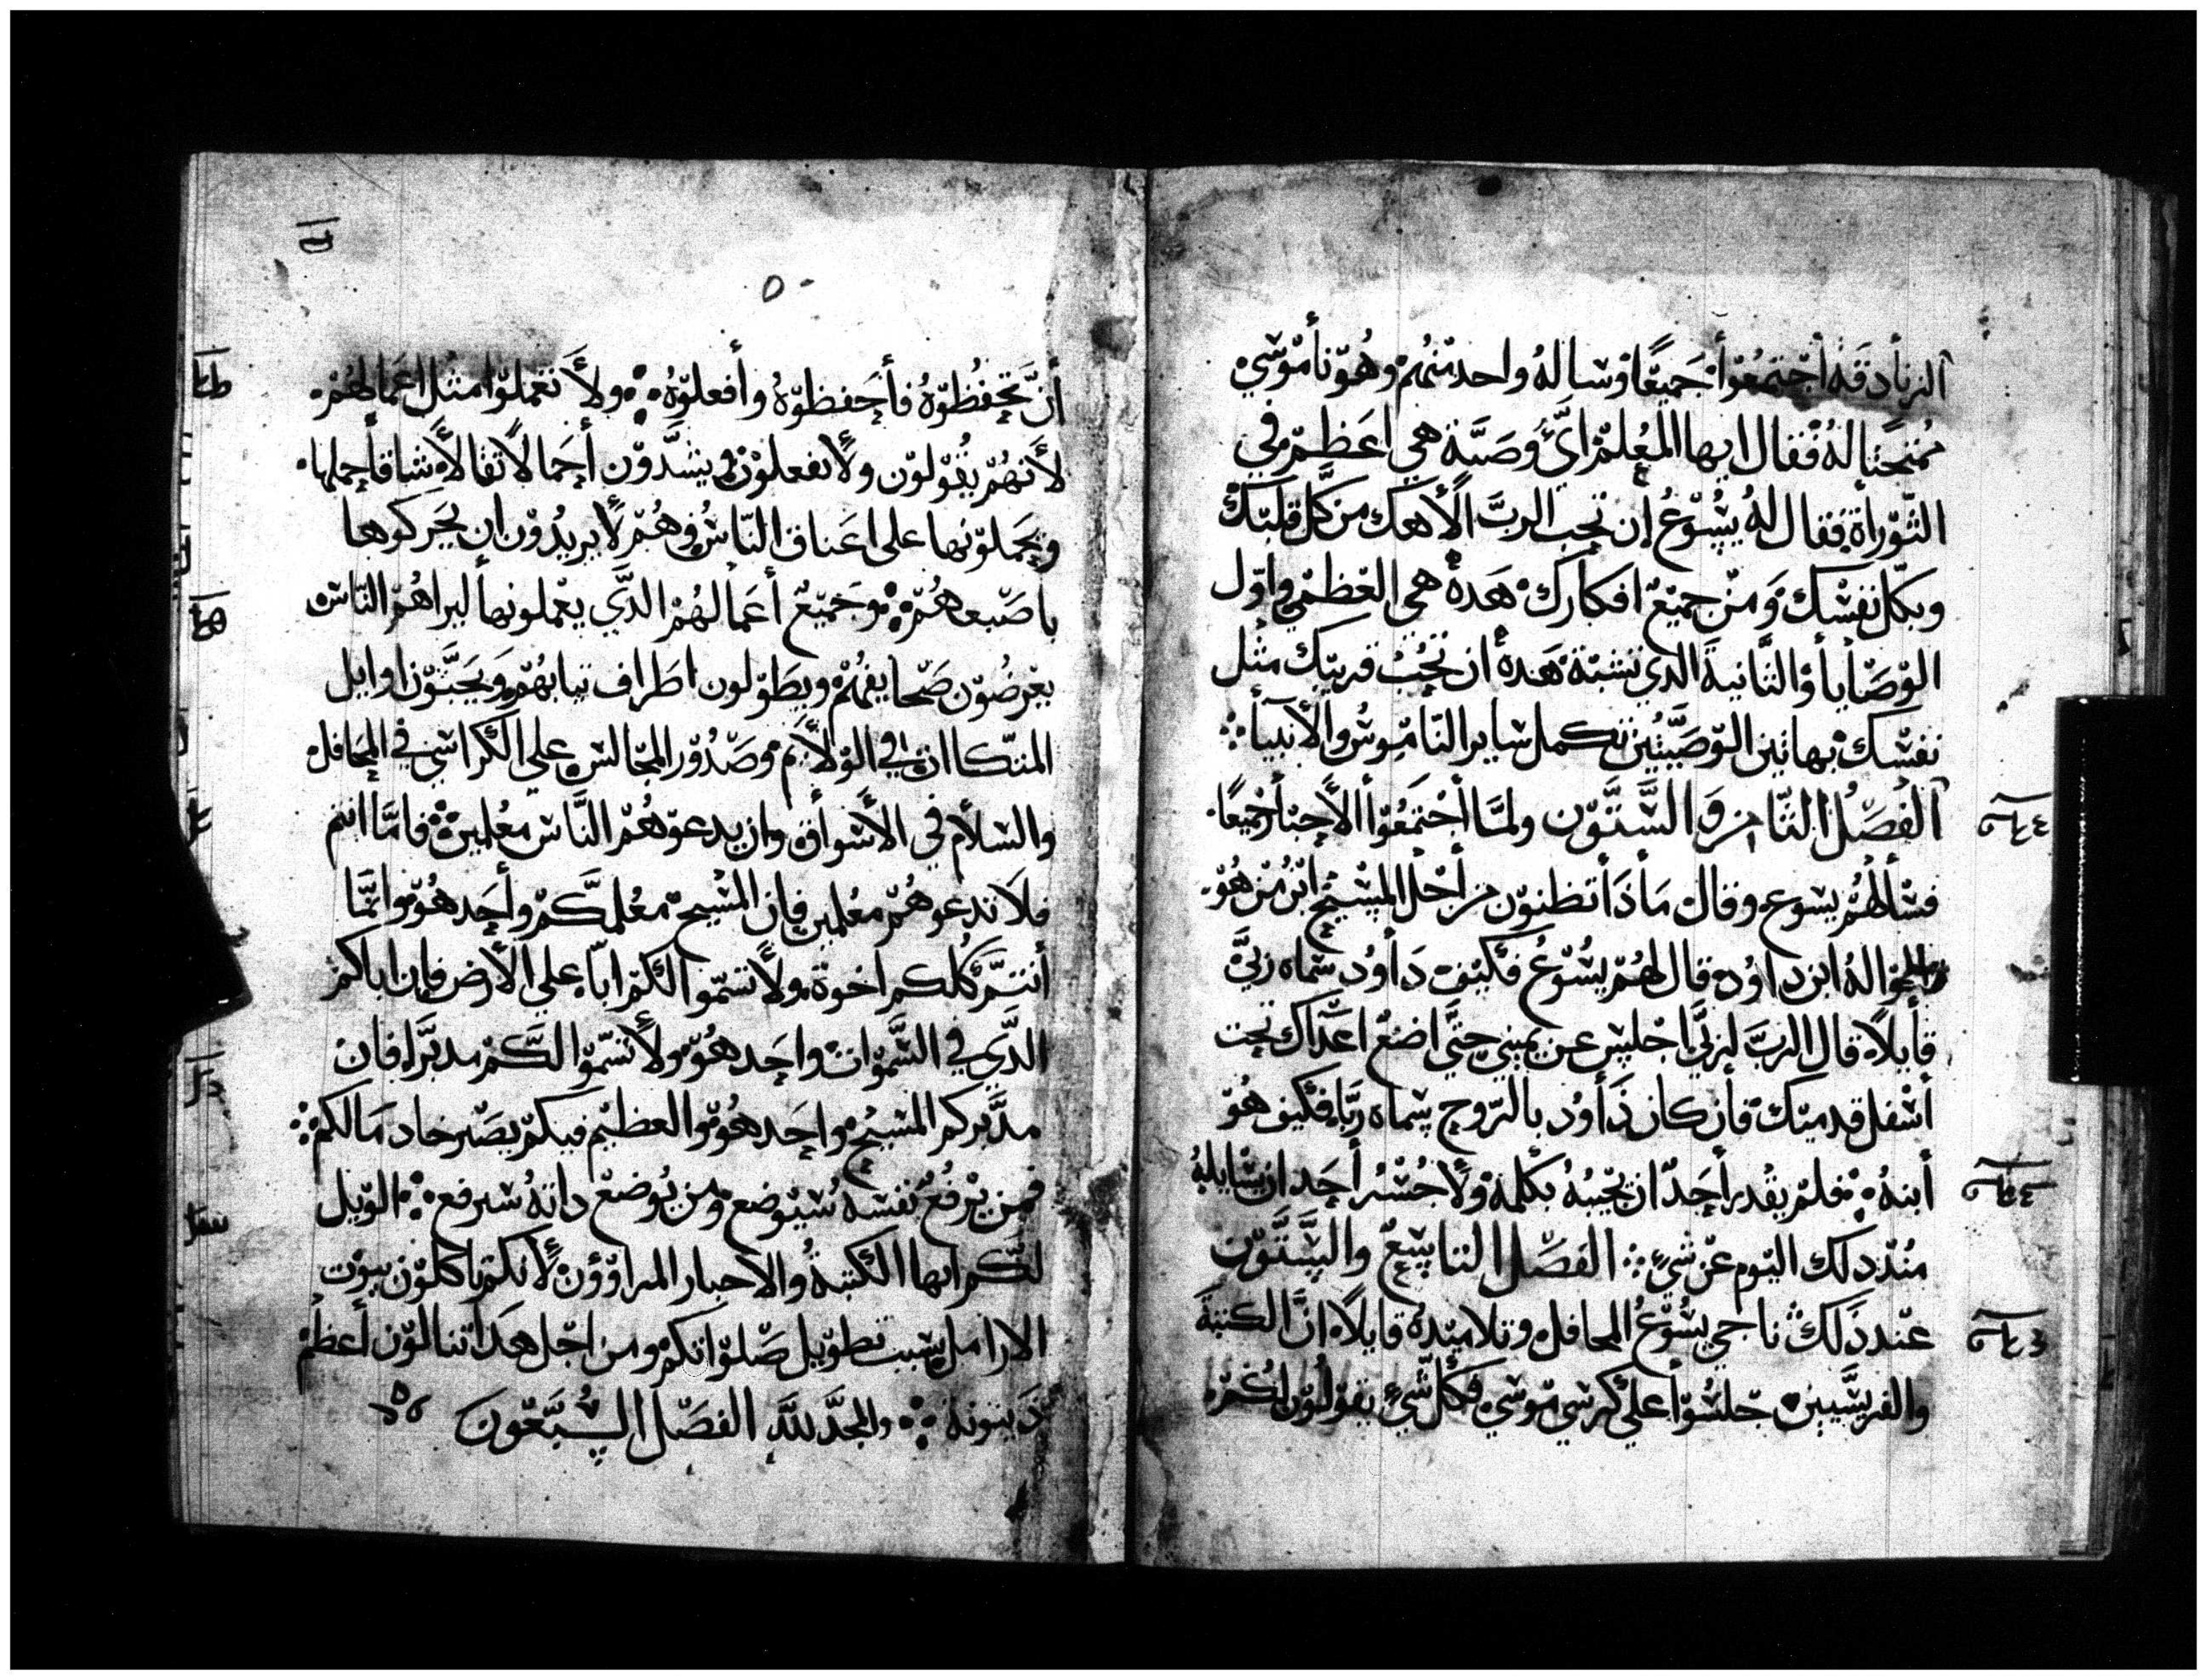 الزنأدقه أجتمعوأ جميعًا وساله واحد منهم وهو نأموسي
ممتحنا له فقال ايها المعلم ايّ وصية هي اعظم في
التوراة فقال له يسوع إن تحب الرب الأهك من كل قلبك
وبكل نفسك ومن جميع افكارك هده هي العظمي واول
الوصأيا والثانية الدي تشبة هده ان تحب قريبك مثل
نفسك بهاتين الوصيتين تكمل ساير الناموس والأنبيأ
الفصل الثامن والستون ولما اجتمعوأ الأحبأر جميعًا
فسألهم يسوع وقال مأذأ تظنون من أجل المسيح ابن من هو
قالوا له ابن داوُد قال لهم يسوع فكيف دأوُد سماه ربي
قأيلاً قال الرب لربي اجلس عن يميني حتي اضع اعداك تحت
أسفل قدميك فأن كان دأوُد بالروح يسماه ربا فكيف هو
أبنه فلم يقدر أحد ان يجيبه بكلمة ولا جسر أحد ان يسايله
مند دلك اليوم عن شيء الفصل التاسع والستون
عند ذلك ناجي يسوع المحافل وتلاميده قايلاً ان الكتبة
والفريسيين جلسوأ علي كرسي موسي فكل شيء يقولون لكم
أن تحفظوه فأحفظوه وأفعلوه ولأ تعملوا مثل اعمالهم
لأنهم يقولون ولأ يفعلون ويشدون أحمالاً تقالاً شاقأ حملها
ويحملونها علي اعناق الناس وهم لا يريدون ان يحركوها
باصبعهم وجميع أعمالهم الدي يعملونها ليراهم الناس
يعرضون صحايفهم ويطولون اطراف تيابهم ويحبون اوايل
المتكاات في الولايم وصدور المجالس علي الكراسي في المحافل
والسلأم في الأسواق وان يدعوهم الناس معلمين فاما انتم
فلا تدعوهم معلمين فان المسيح معلمكم وأحد هو وانما
أنتم كلكم اخوة ولأ تسموا لكم ابا علي الأرض فان اباكم
الدي في السموات واحد هو ولأ تسموا لكم مدبرا فان
مدبركم المسيح واحد هو والعظيم فيكم يصير خادمالكم
فمن يرفع نفسه سيوضع ومن يوضع داته سيرفع الويل
لكم ايها الكتبة والاحبار المراوؤن لأنكم تأكلون بيوت
الارامل بسبب تطويل صلواتكم ومن اجل هدا تنالون أعظم
دينونة والمجد لله الفصل السبعون